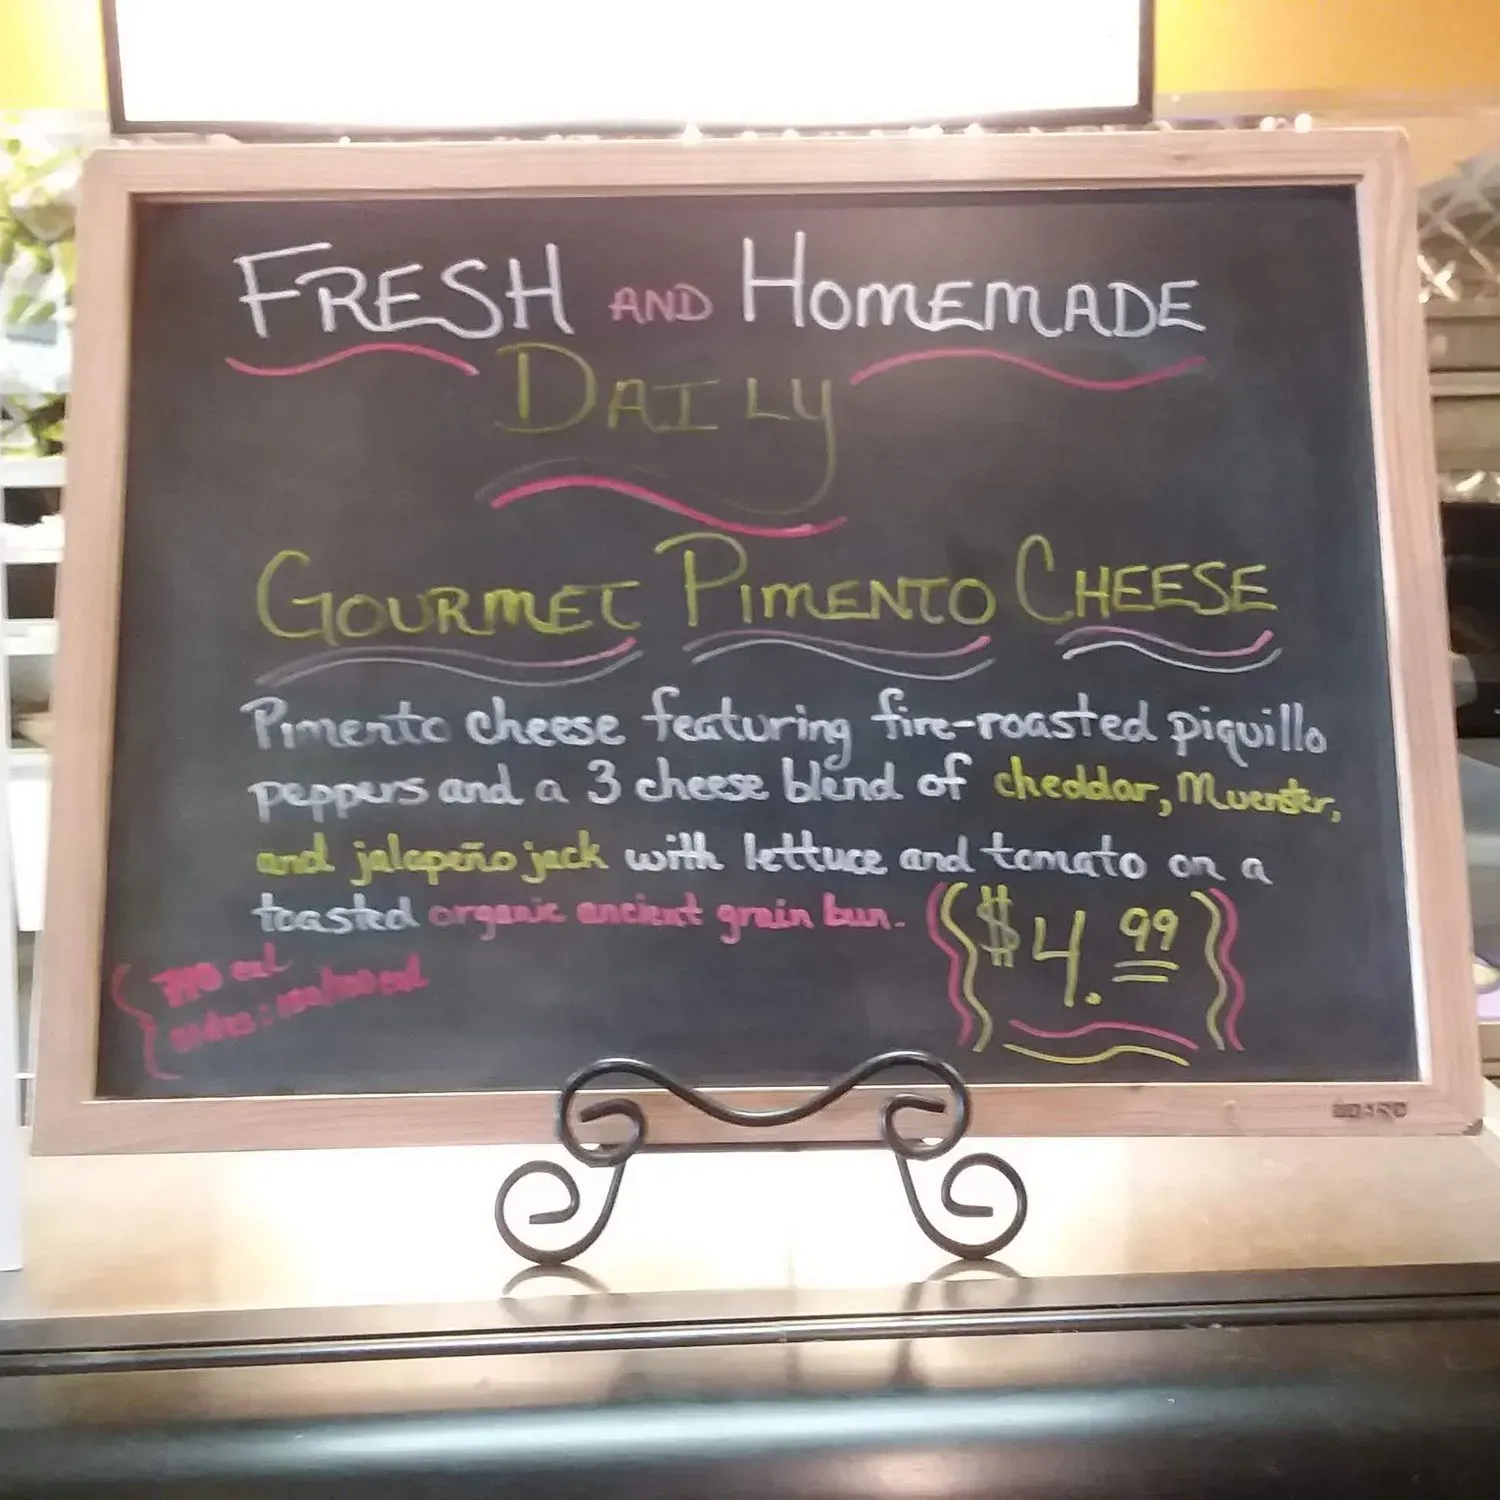 FRESH AND HOMEMADE
DAILY
GOURMET PIMENTO CHEESE
Pimento cheese featuring fire-roasted piquillo
peppers and a 3 cheese blend of cheddar, Muenster,
and jalapeño jack with lettuce and tomato on a
toasted organic ancient grain bun.
$4.99
cal
sides: cal